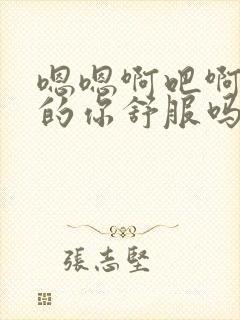 嗯嗯啊吧啊
的你舒服吗
張志堅